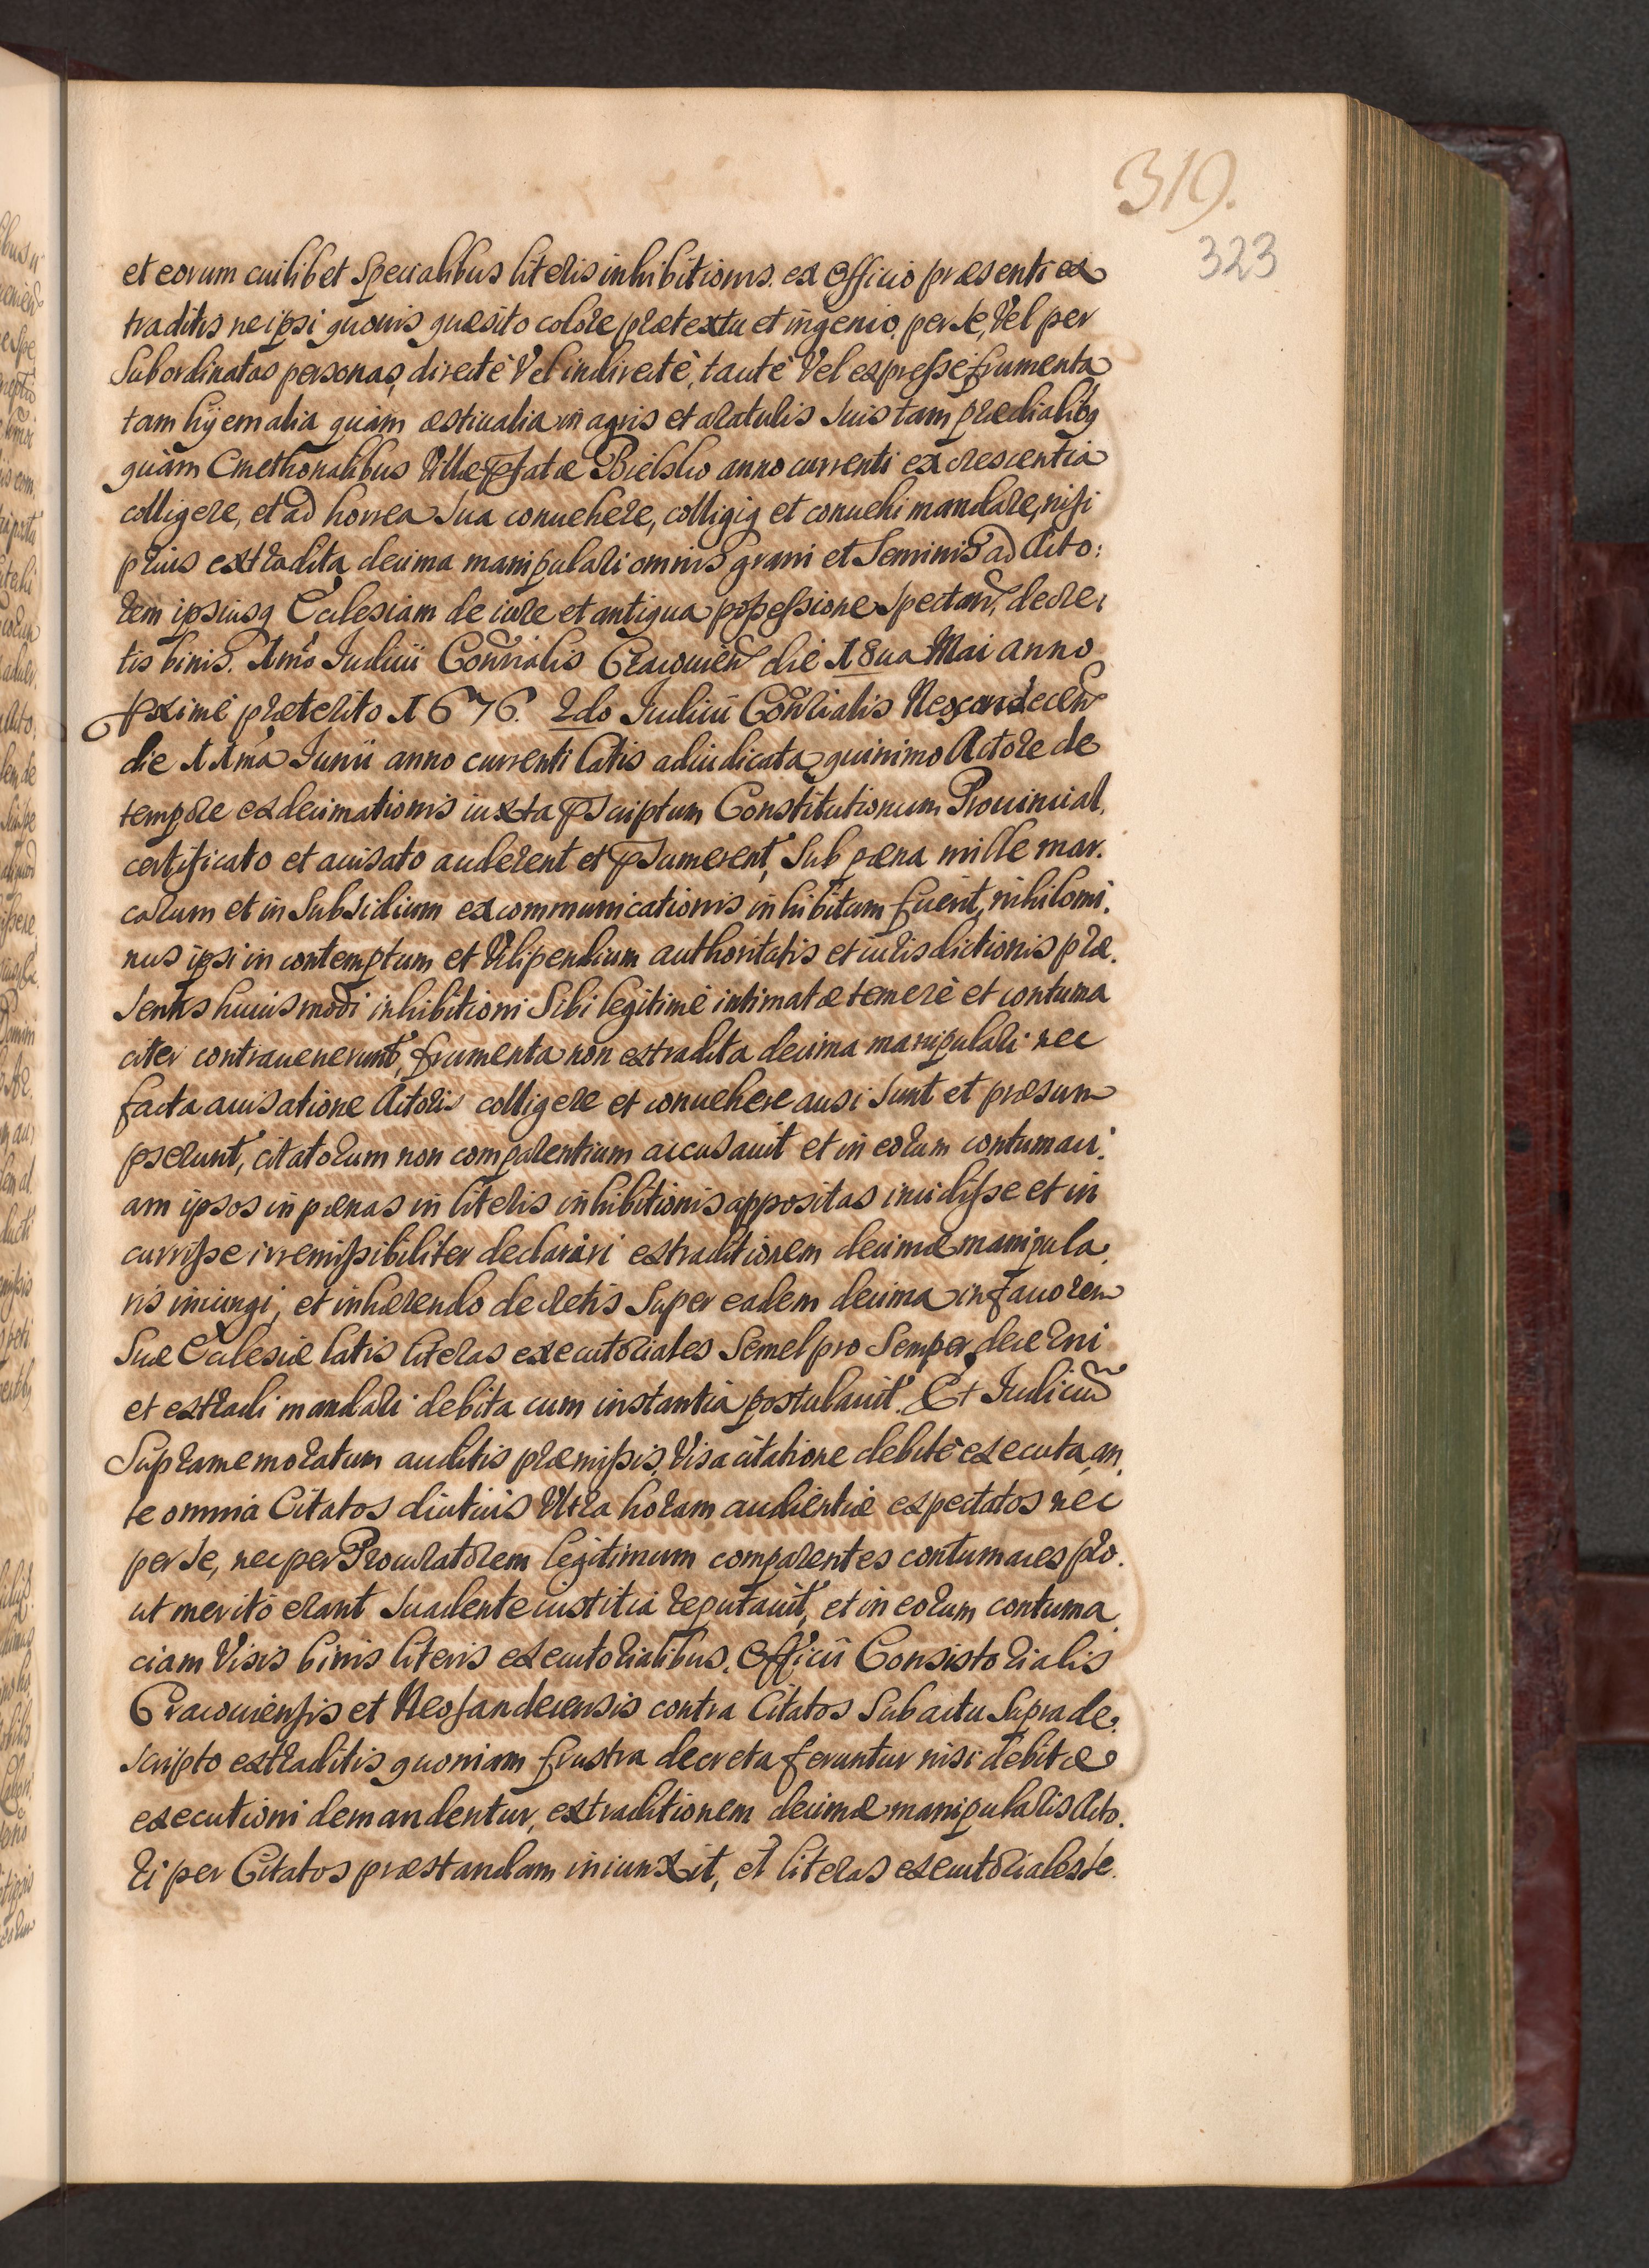 319.
323
et eorum cuilibet specialibus literis inhibitionis. ex Officio præsenti ex
traditis ne ipsi quouis quæsito colore prætextu et ingenio, per se, Vel per
Subordinatas personas, directè Vel indirectè, tautè Vel expresse frumenta
tam hyemalia quam æstiualia in agris et aratulis suis tam prædialibq
quàm Cmethonalibus Villæ pfatæ Bielsko anno currenti excrescentia
colligere, et ad horrea sua conuehere, colligiq et conuehi mandare, nisi
prius extradita decima manipulari omnis grani et Seminis ad Acto:
rem ipsiusq Ecclesiam de iure et antiqua possessione spectan, decre:
tis binis. Imo Iudicii Conrialis Cracouien die 18ua Mai anno
pximè præterito 1676. 2do Iudicii Conrialis Neosandecen
die 11ma Iunii anno currenti latis adiudicata, quinimo Actore de
tempore exdecimationis iuxta pscriptum Constitutionum Prouincial.
certificato et auisato auderent et psumerent, Sub pæna mille mar.
carum et in Subsidium excommunicationis inhibitum fuerit, nihilomi.
nus ipsi in contemptum et Vilipendium authoritatis et iurisdictionis præ.
sentis huiusmodi inhibitioni Sibi legitimè intimatæ temerè et contuma
citer contrauenerunt, frumenta non extradita decima manipulari nec
facta auisatione Actori colligere et conuehere ausi sunt et præsum
pserunt, citatorum non comparentium accusauit et in eorum contumaci.
am ipsos in pænas in literis inhibitionis appositas incidisse et in
currisse irremissibiliter declarari extraditionem decimæ manipula.
ris iniungi, et inhærendo decretis Super eadem decima in fauorem
Suæ Ecclesiæ latis literas executoriales Semel pro Semper decerni
et extradi mandari debita cum instantia postulauit. Et Iudiciu
Supramemoratum auditis præmissis, Visa citatione debitè executa, an
te omnia Citatos diutius Vltra horam audientiæ expectatos nec
per se, nec per Procuratorem legitimum comparentes contumaces pro.
ut meritò erant suadente iustitia reputauit, et in eorum contuma
ciam Visis binis literis executorialibus. Officii Consistorialis
Cracouiensis et Neosandecensis contra Citatos Sub actu Suprade.
scripto extraditis quoniam frustra decreta feruntur nisi debitæ
executioni demandentur, extraditionem decimæ manipularis Acto.
ri per Citatos præstandam iniunxit, et literas executoriales se.